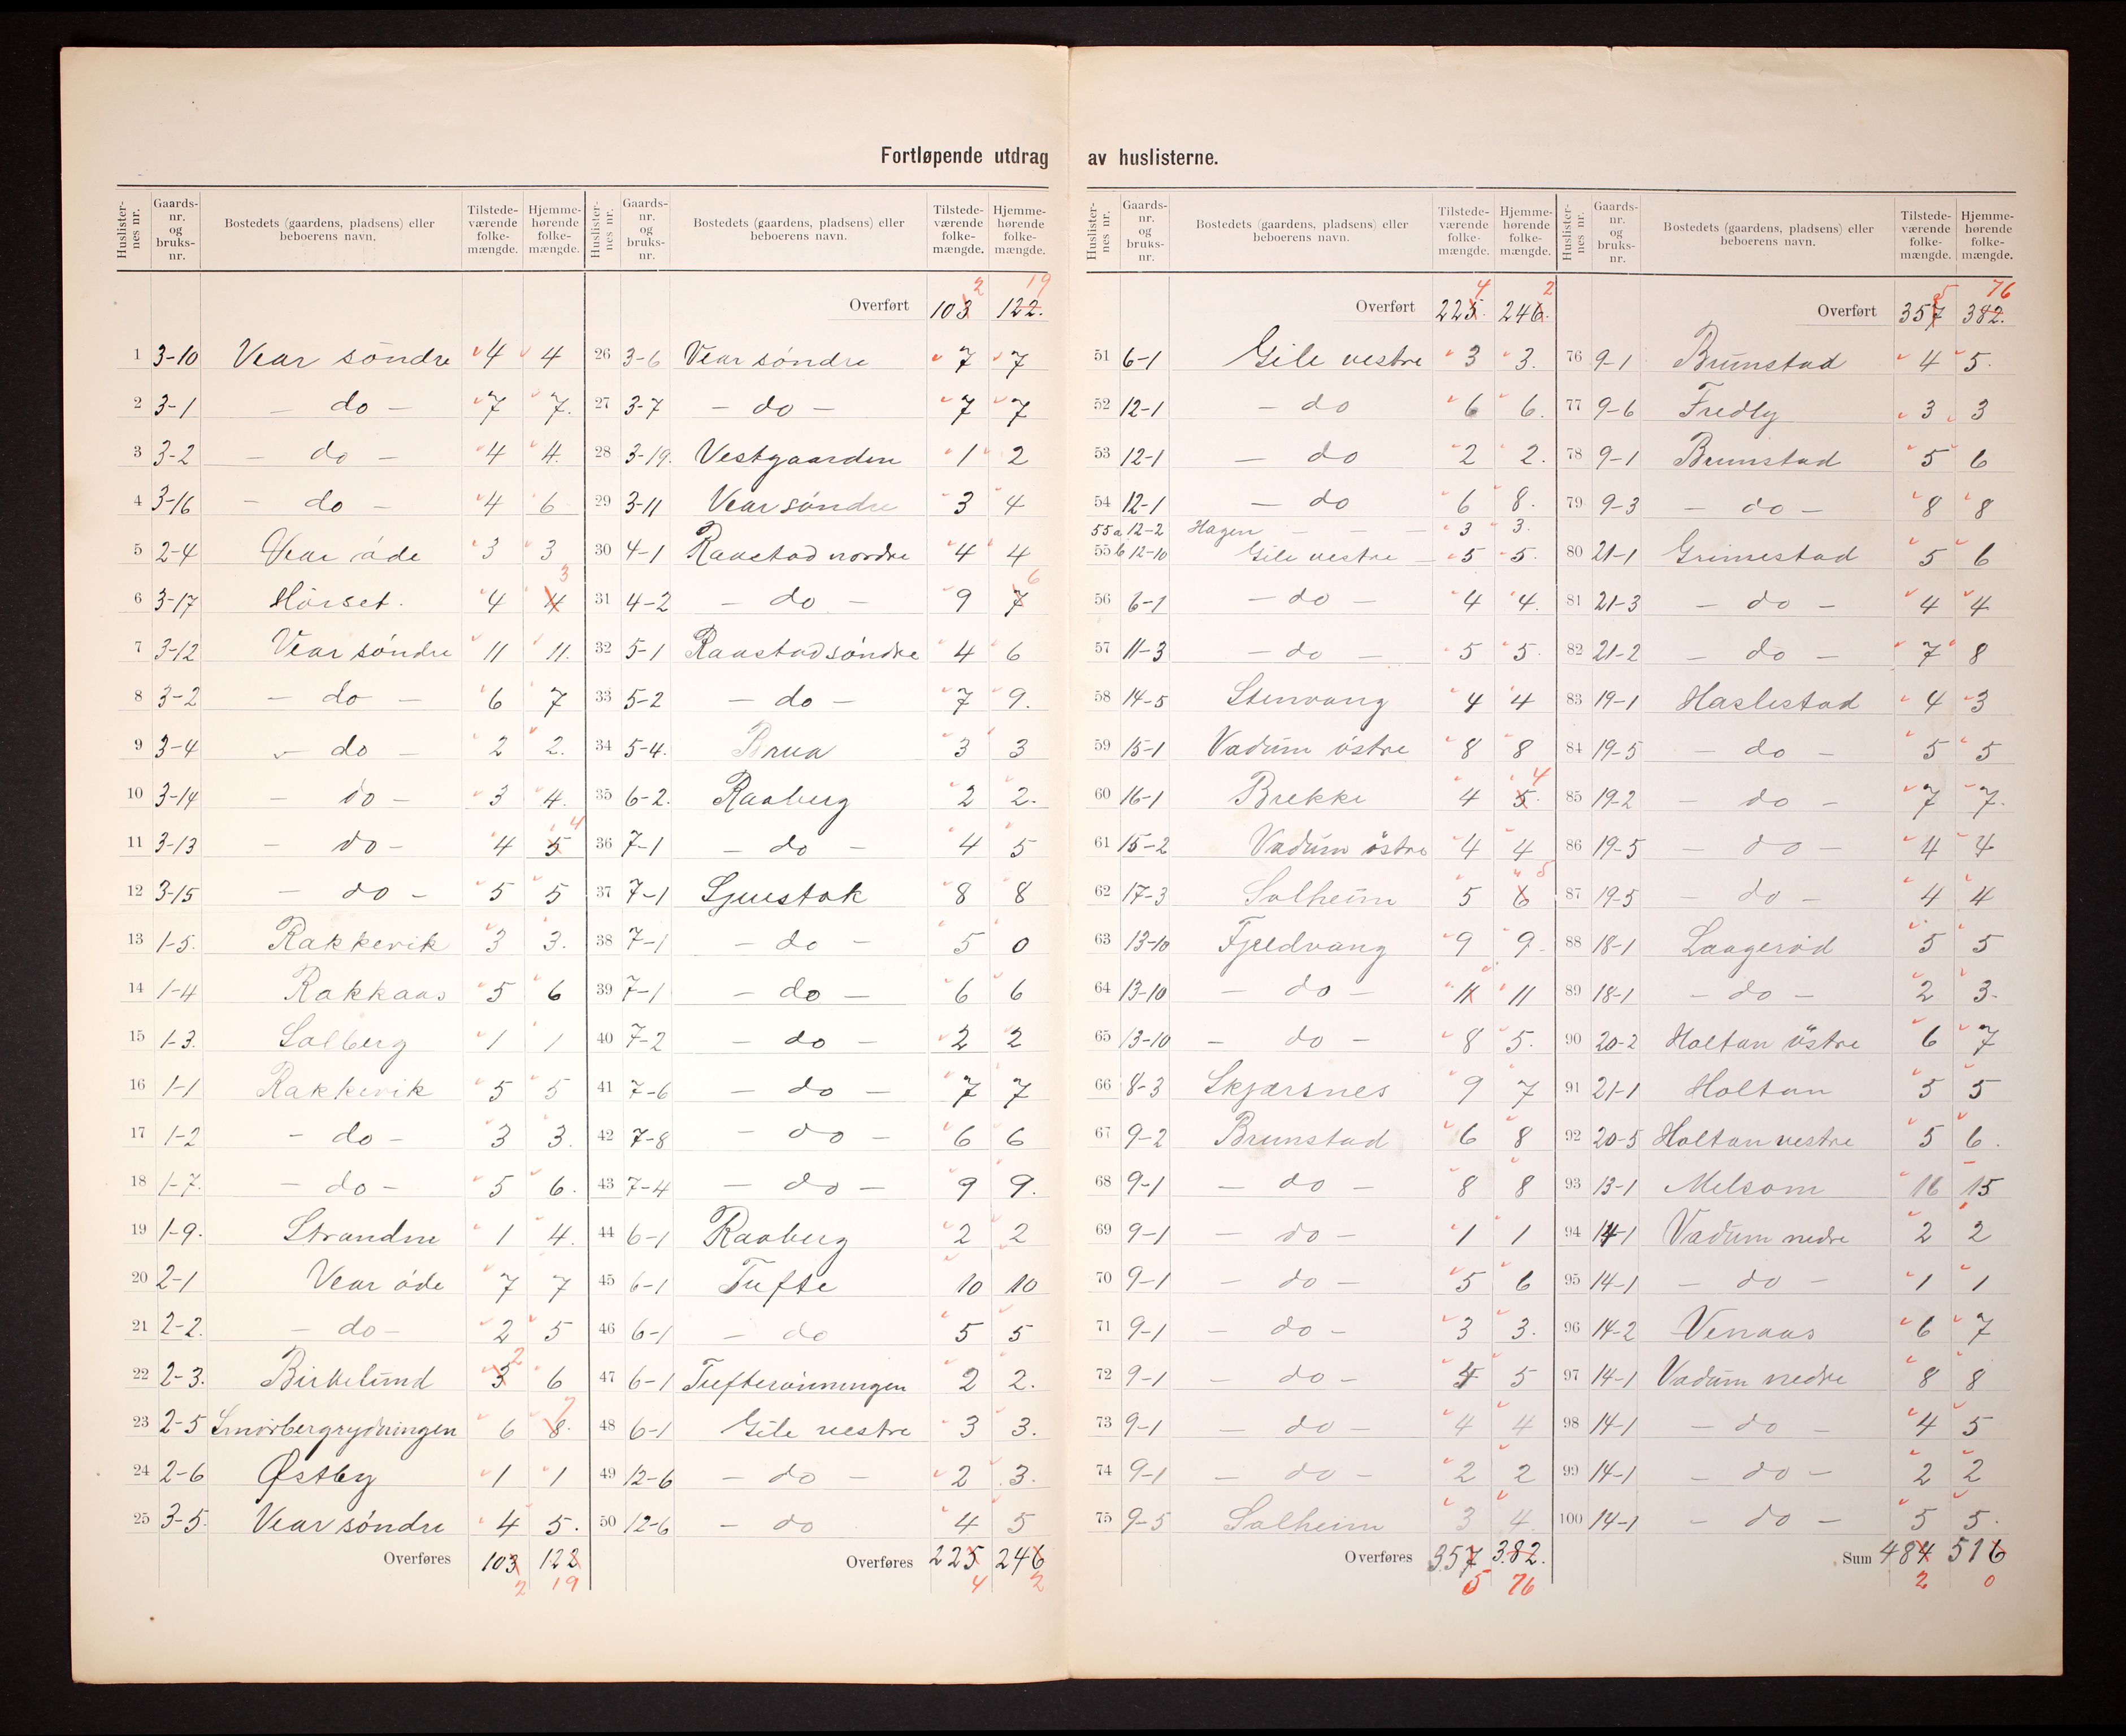 Fortløpende utdrag av huslisterne.
Huslister-nes nr. | Gaards-nr. og bruks-nr. | Bostedets (gaardens, pladsens) eller beboerens navn. | Tilstede-værende folke-mængde. | Hjemme-hørende folke-mængde.
1 3-10 Vear söndre 4 4
2 3-1 - do - 7 7.
3 3-2 - do - 4 4.
4 3-16 - do - 4 6
5 2-4 Vear öde 3 3
6 3-17 Hörset. 4 4 3
7 3-12 Vear söndre 11 11.
8 3-2 - do - 6 7
9 3-4 - do - 2 2.
10 3-14 - do - 3 4.
11 3-13 - do - 4 5 4
12 3-15 - do - 5 5
13 1-5. Rakkevik 3 3.
14 1-4 Rakkaas 5 6
15 1-3. Solberg 1 1
16 1-1 Rakkevik 5 5
17 1-2 - do - 3 3.
18 1-7. - do - 5 6.
19 1-9. Strandne 1 4.
20 2-1 Vear öde 7 7
21 2-2. - do - 2 5
22 2-3. Birkelund 3 2 6
23 2-5 Smörbergrydningen 6 8. 7
24 2-6 Østby 1 1
25 3-5. Vear söndre 4 5.
Overføres 103 122
2 19
Huslister-nes nr. | Gaards-nr. og bruks-nr. | Bostedets (gaardens, pladsens) eller beboerens navn. | Tilstede-værende folke-mængde. | Hjemme-hørende folke-mængde.
2 19
Overført 103 122.
26 3-6 Vear söndre 7 7
27 3-7 - do - 7 7
28 3-19. Vestgaarden 1 2
29 3-11 Vear söndre 3 4
30 4-1 Raastad nordre 4 4
31 4-2 - do - 9 7 6
32 5-1 Raastad söndre 4 6
33 5-2 - do - 7 9.
34 5-4. Brua 3 3
35 6-2. Raaberg 2 2.
36 7-1 - do - 4 5
37 7-1 Sjuestok 8 8
38 7-1 - do - 5 0
39 7-1 - do - 6 6
40 7-2 - do - 2 2
41 7-6 - do - 7 7
42 7-8 - do - 6 6
43 7-4 - do - 9 9.
44 6-1 Raaberg 2 2
45 6-1 Tufte 10 10
46 6-1 - do 5 5
47 6-1 Tufterönningen 2 2.
48 6-1 Gile vestre 3 3.
49 12-6 - do - 2 3.
50 12-6 - do 4 5
Overføres 225 246
4 2
Huslister-nes nr. | Gaards-nr. og bruks-nr. | Bostedets (gaardens, pladsens) eller beboerens navn. | Tilstede-værende folke-mængde. | Hjemme-hørende folke-mængde.
4 2
Overført 225. 246.
51 6-1 Gile vestre 3 3.
52 12-1 - do 6 6.
53 12-1 - do 2 2.
54 12-1 - do 6 8.
55a 12-2 Hagen - - - 3 3.
55b 12-10 Gile vestre 5 5.
56 6-1 - do - 4 4.
57 11-3 - do - 5 5.
58 14-5 Stenvang 4 4
59 15-1 Vadum östre 8 8
60 16-1 Brekke 4 5. 4
61 15-2 Vadum östre 4 4
62 17-3 Solheim 5 6 5
63 13-10 Fjeldvang 9 9.
64 13-10 - do - 11 11
65 13-10 - do - 8 5.
66 8-3 Skjærsnes 9 7
67 9-2 Brunstad 6 8
68 9-1 - do - 8 8
69 9-1 - do - 1 1
70 9-1 - do - 5 6
71 9-1 - do - 3 3.
72 9-1 - do - 4 5
73 9-1 - do - 4 4
74 9-1 - do - 2 2
75 9-5 Solheim 3 4.
Overføres 357 382.
5 76
Huslister-nes nr. | Gaards-nr. og bruks-nr. | Bostedets (gaardens, pladsens) eller beboerens navn. | Tilstede-værende folke-mængde. | Hjemme-hørende folke-mængde.
5 76
Overført 357 382.
76 9-1 Brunstad 4 5.
77 9-6 Fredly 3 3
78 9-1 Brunstad 5 6
79 9-3 - do - 8 8
80 21-1 Grimestad 5 6
81 21-3 - do - 4 4
82 21-2 - do - 7 8
83 19-1 Haslestad 4 3
84 19-5 - do - 5 5
85 19-2 - do - 7 7.
86 19-5 - do - 4 4
87 19-5 - do - 4 4
88 18-1 Laageröd 5 5
89 18-1 - do - 2 3.
90 20-2 Holtan östre 6 7
91 21-1 Holtan 5 5
92 20-5 Holtan vestre 5 6.
93 13-1 Melsom 16 15
94 14-1 Vadum nedre 2 2
95 14-1 - do - 1 1
96 14-2 Venaas 6 7
97 14-1 Vadum nedre 8 8
98 14-1 - do - 4 5
99 14-1 - do - 2 2
100 14-1 - do - 5 5.
Sum 484 516
2 0